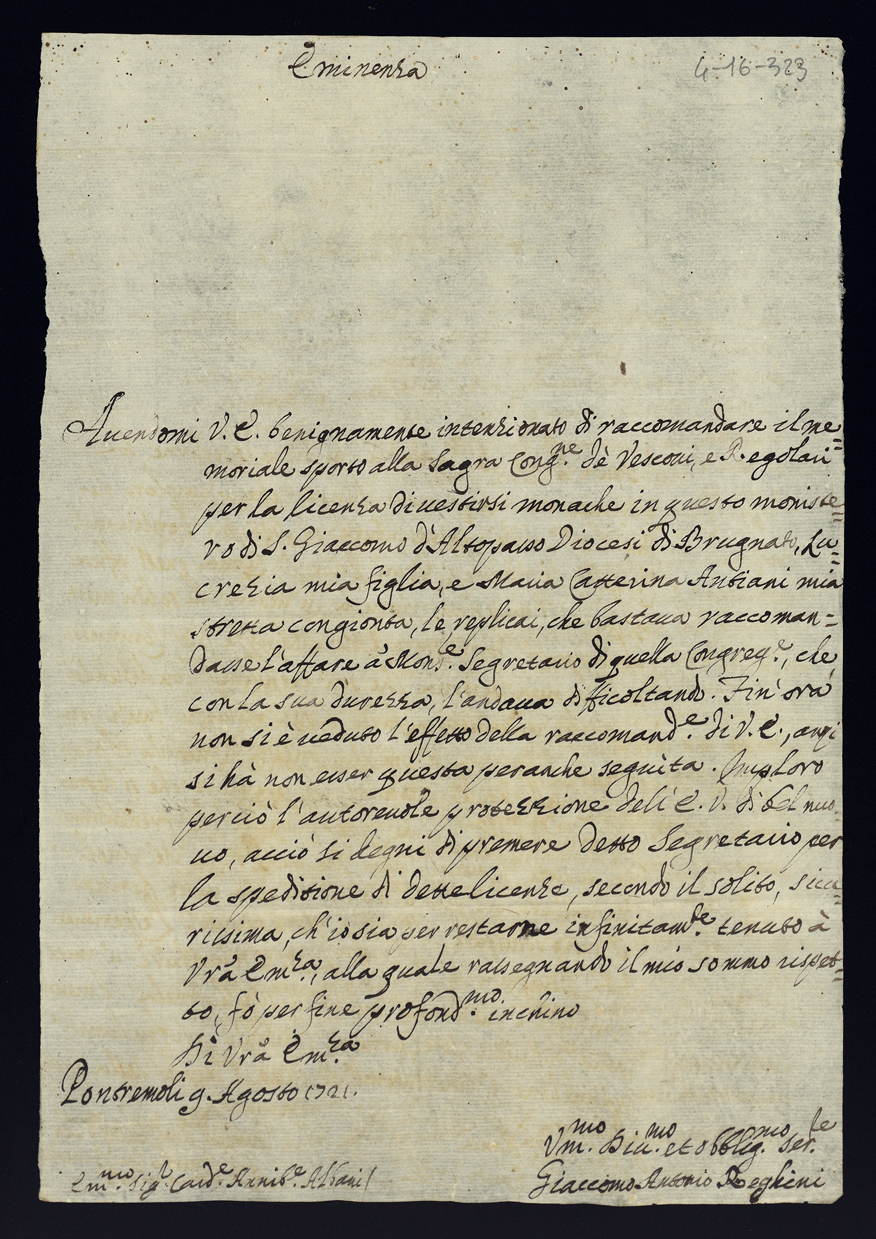 Eminenza
4-16-323
Avendomi V. E. benignamente intenzionato di raccomandare il me=
moriale sporto alla Sagra Cong.ne dè Vescovi, e Regolari
per la licenza di vestirsi monache in questo moniste=
ro di S. Giaccomo d'Altopasso Diocesi di Brugnato, Lu=
crezia mia figlia, e Maria Catterina Antiani mia
stretta congionta, le replicai, che bastava raccoman=
dasse l'affare à Mons.e Segretario di quella Congreg.e, che
con la sua durezza, l'andava difficoltando. Fin' ora
non si è veduto l'effetto della raccomand.e di V. E., anzi
si hà non esser questa per anche seguita. Imploro
perciò l'autorevole protezzione dell' E. V. di bel nuo=
vo, acciò si degni di premere detto Segretario per
la speditione di dette licenze, secondo il solito, sicu=
rissima, ch'io sia per restarne infinitam.de tenuto à
Vrã Em.za, alla quale rassegnando il mio sommo rispet=
to, fò per fine profond.mo inchino
Di Vrã Em.za
Pontremoli 9. Agosto 1721.
Vm.mo Div.mo et obblig.mo Ser.le
Em.mo Sig.r Card.e Annib.e Albani
Giaccomo Antonio Reghini